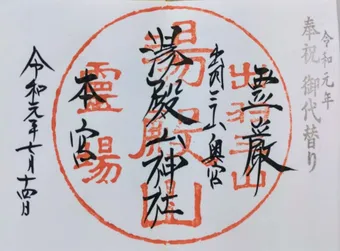 令和元年
奉祝 御代替り
霊厳
出羽三山奥宮
湯殿山神社
本宮
令和元年七月十四日
出羽三山
湯殿山
靈場